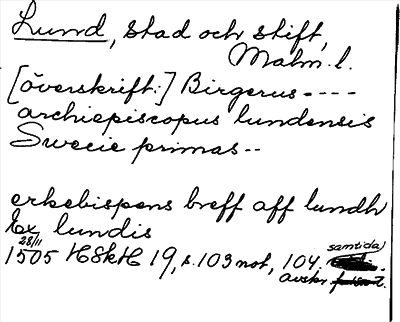 Lund, stad och stift,
Malm. l.
[överskrift:] Birgerus ----
archiepiscopus lundensis
Swecie primas --
erkebispens breff aff lundh
Ex lundis
28/11
1505 HSkH 19, s. 103 not, 104. samtida
avskr.